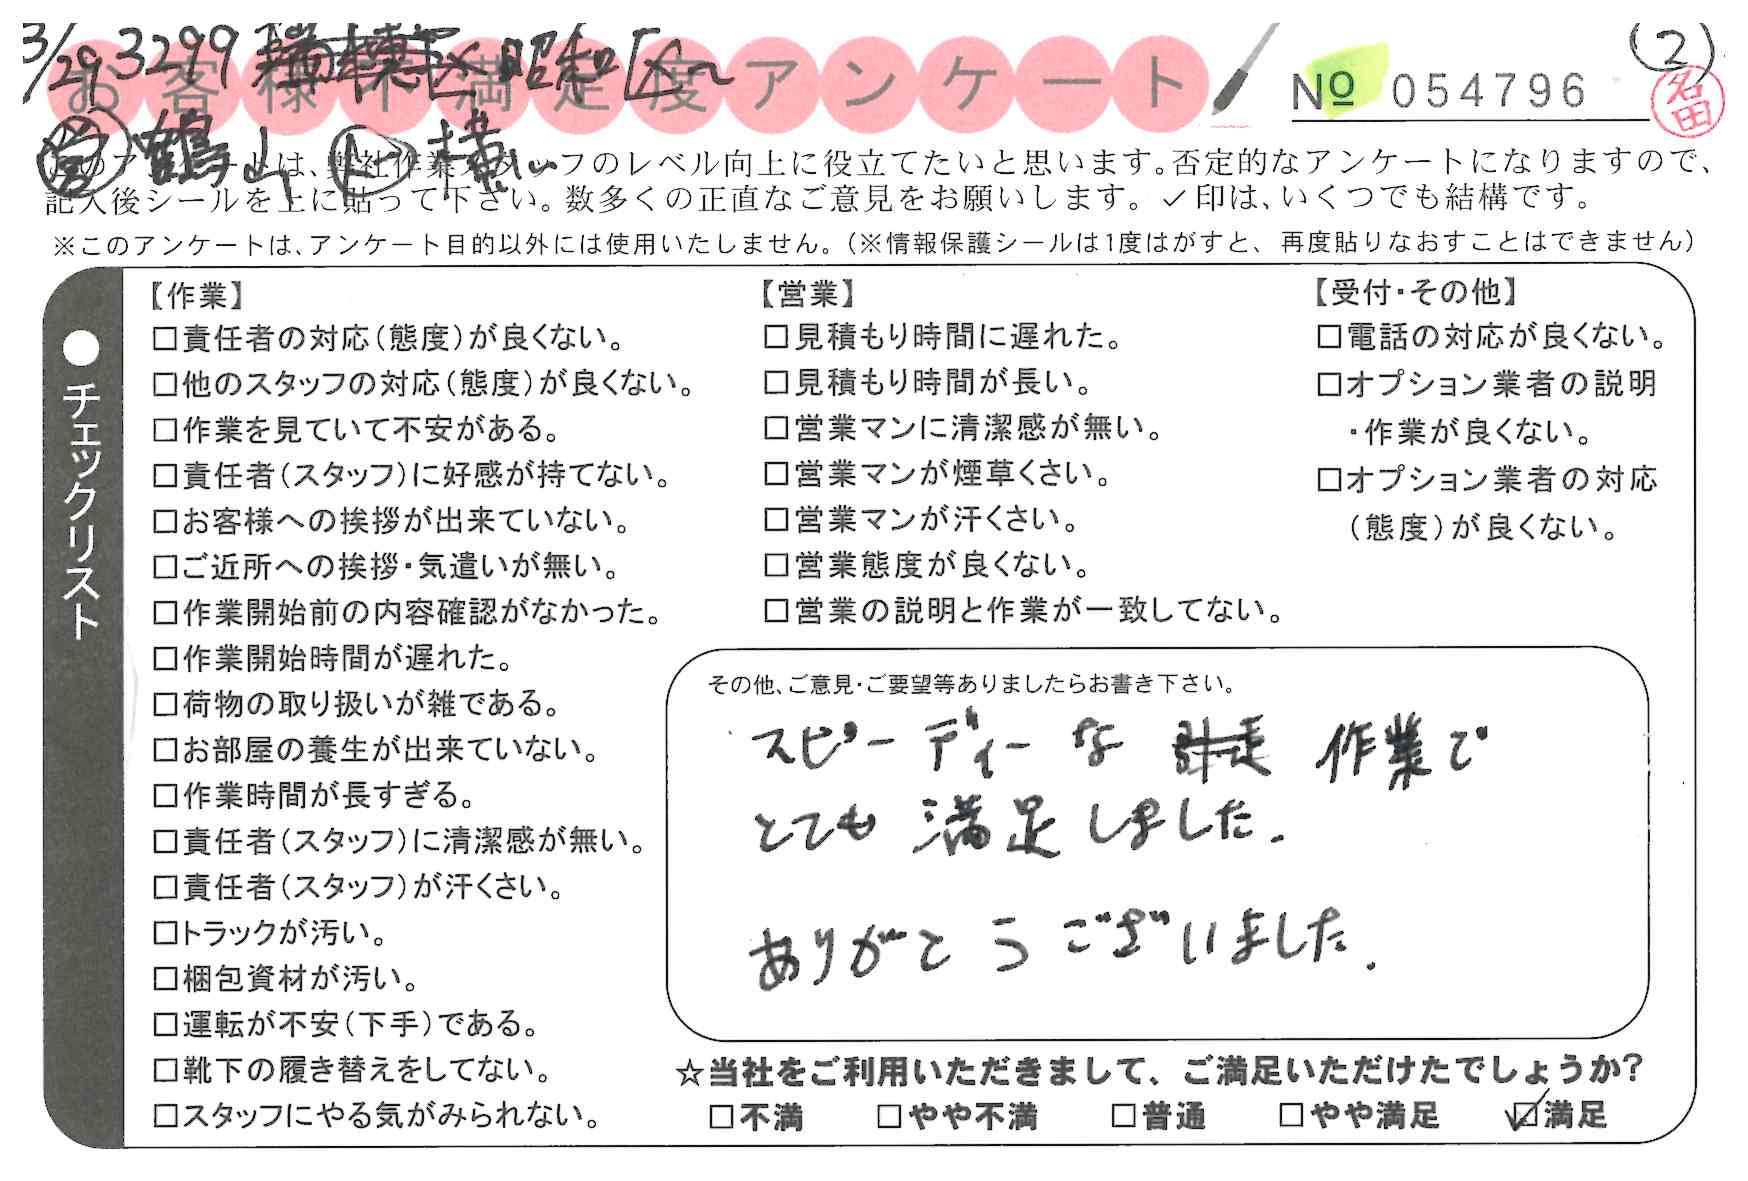 3/29 3299 瑞穂区 昭和区へ
お客様不満足度アンケート
№ 054796
(2)
名田
営 鶴山 L 横山
このアンケートは、弊社作業スタッフのレベル向上に役立てたいと思います。否定的なアンケートになりますので、
記入後シールを上に貼って下さい。数多くの正直なご意見をお願いします。✓印は、いくつでも結構です。
※このアンケートは、アンケート目的以外には使用いたしません。(※情報保護シールは1度はがすと、再度貼りなおすことはできません)
●チェックリスト
【作業】
□責任者の対応(態度)が良くない。
□他のスタッフの対応(態度)が良くない。
□作業を見ていて不安がある。
□責任者(スタッフ)に好感が持てない。
□お客様への挨拶が出来ていない。
□ご近所への挨拶・気遣いが無い。
□作業開始前の内容確認がなかった。
□作業開始時間が遅れた。
□荷物の取り扱いが雑である。
□お部屋の養生が出来ていない。
□作業時間が長すぎる。
□責任者(スタッフ)に清潔感が無い。
□責任者(スタッフ)が汗くさい。
□トラックが汚い。
□梱包資材が汚い。
□運転が不安(下手)である。
□靴下の履き替えをしてない。
□スタッフにやる気がみられない。
【営業】
□見積もり時間に遅れた。
□見積もり時間が長い。
□営業マンに清潔感が無い。
□営業マンが煙草くさい。
□営業マンが汗くさい。
□営業態度が良くない。
□営業の説明と作業が一致してない。
【受付・その他】
□電話の対応が良くない。
□オプション業者の説明
・作業が良くない。
□オプション業者の対応
(態度)が良くない。
その他、ご意見・ご要望等ありましたらお書き下さい。
スピーディーな 作業で
とても満足しました.
ありがとうございました.
☆当社をご利用いただきまして、ご満足いただけたでしょうか?
□不満 □やや不満 □普通 □やや満足 ☑満足